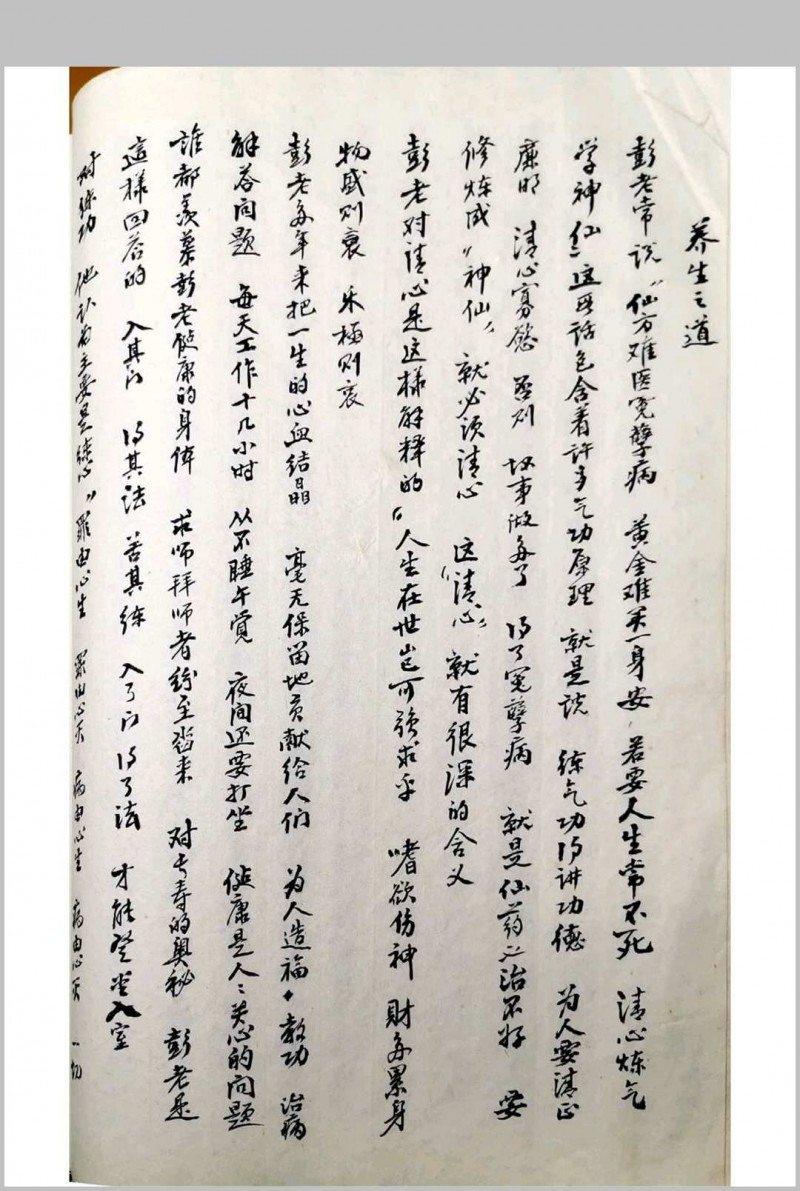 养生之道
彭老常说“仙方难医冤孽病 黄金难买一身安 若要人生常不死 清心炼气
学神仙”这段话包含着许多气功原理 就是说 练气功得讲功德 为人要清正
廉明 清心寡慾 否则 坏事做多了 得了冤孽病 就是仙药亡治不好 要
修炼成“神仙” 就必须清心 这“清心”就有很深的含义
彭老对清心是这样解释的“人生在世岂可强求乎 嗜欲伤神 财多累身
物盛则衰 乐极则哀
彭老多年来把一生的心血结晶 毫无保留地贡献给人们 为人造福 教功 治病
解答问题 每天工作十几小时 从不睡午觉 夜间还要打坐 健康是人：关心的问题
谁都羡慕彭老健康的身体 求师拜师者纷至沓来 对长寿的奥秘 彭老是
這樣回答的 入其门 得其法 苦其练 入了门 得了法 才能登堂入室
对练功 他认为主要是练心“罪由心生 罪由心灭 病由心生 病由心灭 一切